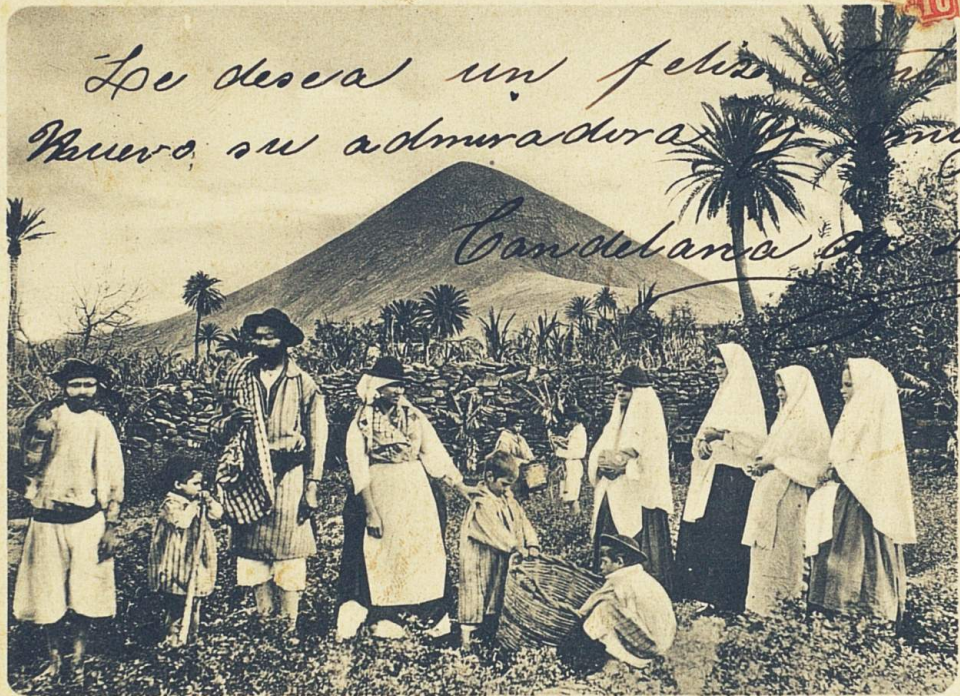 Le desea un feliz
Nuevo su admiradora y
Candelaria de